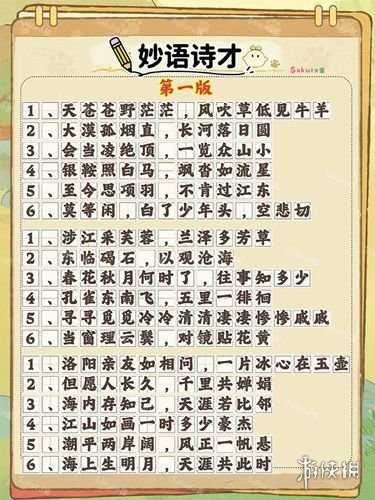 妙语诗才
Sakura酱
第一版
1、天苍苍野茫茫，风吹草低见牛羊
2、大漠孤烟直，长河落日圆
3、会当凌绝顶，一览众山小
4、银鞍照白马，飒沓如流星
5、至今思项羽，不肯过江东
6、莫等闲，白了少年头，空悲切
1、涉江采芙蓉，兰泽多芳草
2、东临碣石，以观沧海
3、春花秋月何时了，往事知多少
4、孔雀东南飞，五里一徘徊
5、寻寻觅觅冷冷清清凄凄惨惨戚戚
6、当窗理云鬓，对镜贴花黄
1、洛阳亲友如相问，一片冰心在玉壶
2、但愿人长久，千里共婵娟
3、海内存知己，天涯若比邻
4、江山如画一时多少豪杰
5、潮平两岸阔，风正一帆悬
6、海上生明月，天涯共此时
游侠网